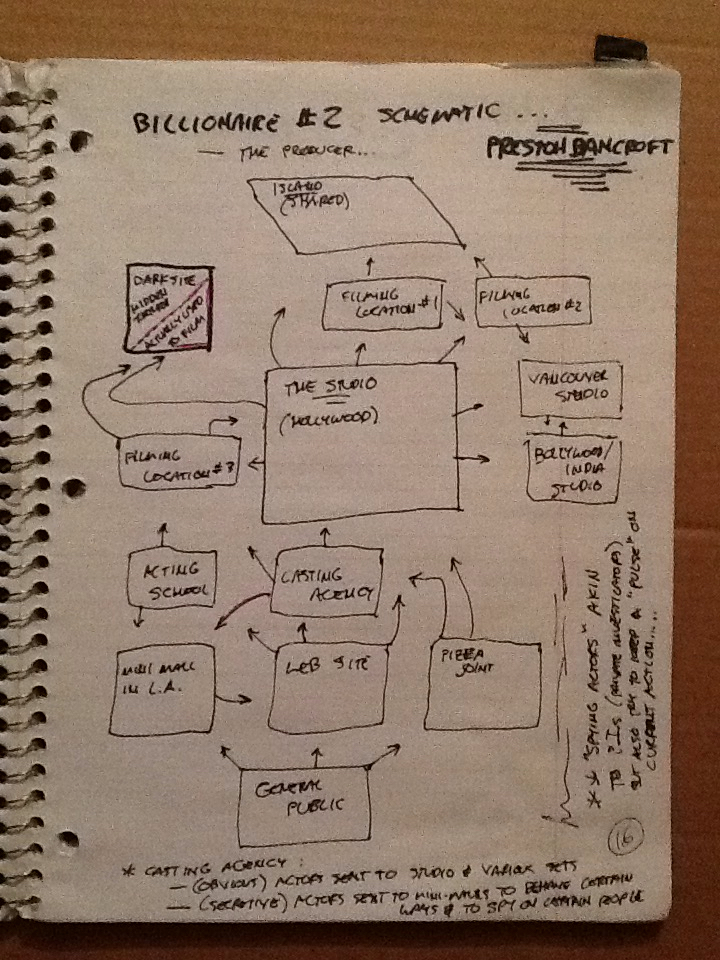 BILLIONAIRE #2 SCHEMATIC ...
— THE PRODUCER...
PRESTON BANCROFT
ISLAND
(SHARED)
DARKSITE
HIDDEN
ACTUALLY USED
TO FILM
FILMING
LOCATION #1
FILMING
LOCATION #2
THE STUDIO
(HOLLYWOOD)
VANCOUVER
STUDIO
BOLLYWOOD/
INDIA
STUDIO
FILMING
LOCATION #3
ACTING
SCHOOL
CASTING
AGENCY
MINI MALL
IN L.A.
WEB SITE
PIZZA
JOINT
GENERAL
PUBLIC
** "SPYING ACTORS" AKIN
TO P.I.s (PRIVATE INVESTIGATORS)
BUT ALSO TRY TO KEEP A "PULSE" ON
CURRENT ACTION....
16
* CASTING AGENCY:
— (OBVIOUS) ACTORS SENT TO STUDIO & VARIOUS SETS
— (SECRETIVE) ACTORS SENT TO MINI-MALLS TO BEHAVE CERTAIN
WAYS & TO SPY ON CERTAIN PEOPLE